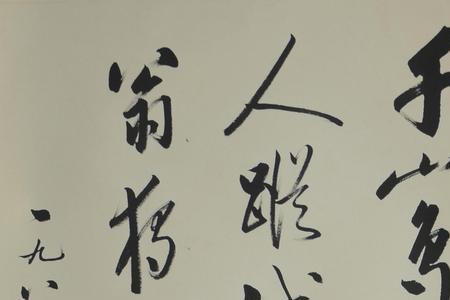 千山鸟
人蹤
翁独
一九八